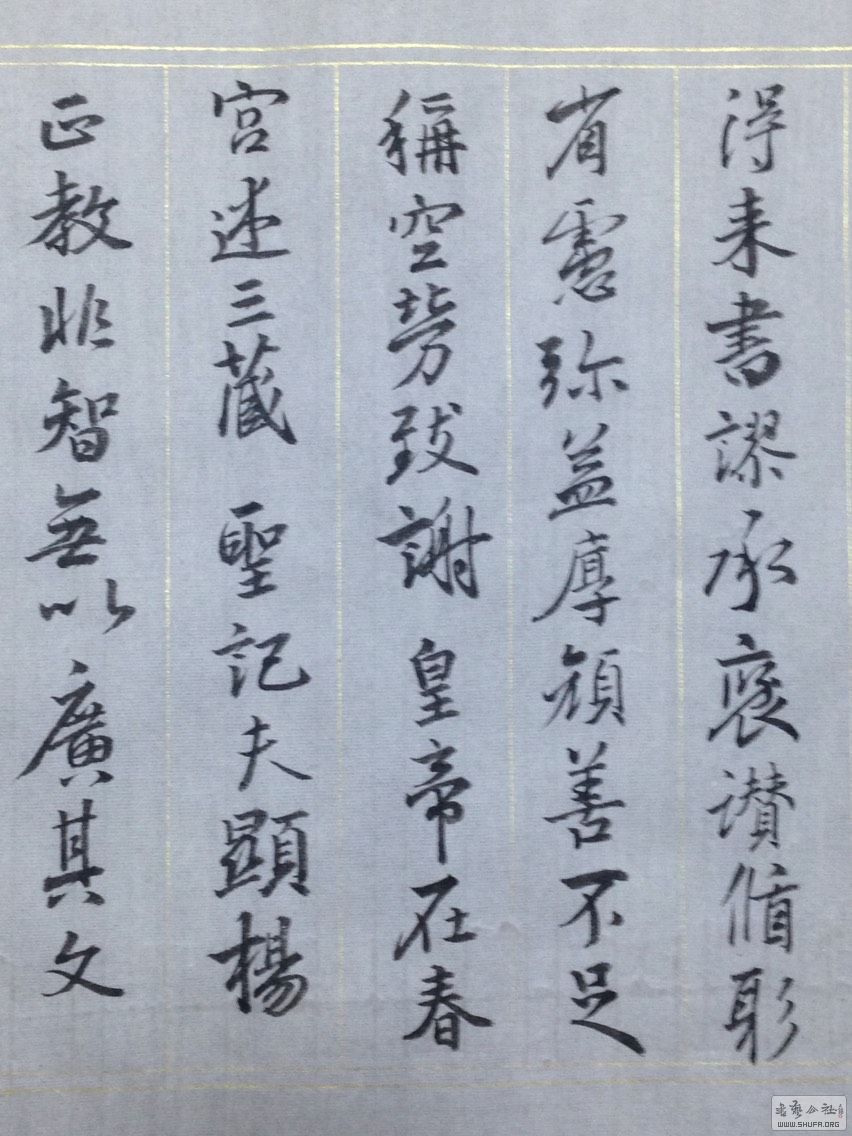 得来書謬承褒讃循躬
省慮弥益厚顔善不足
稱空勞致謝皇帝在春
宮述三藏聖記夫顯楊
正教非智無以廣其文
書藝公社
WWW.SHUFA.ORG